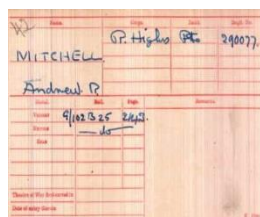 Name. Corps. Rank. Regtl. No.
R. Highrs Pte 290077.
MITCHELL.
Andrew R
Medal. Roll. Page. Remarks.
Victory G/102 B 25
British — do —
Star
Theatre of War first served in
Date of entry therein